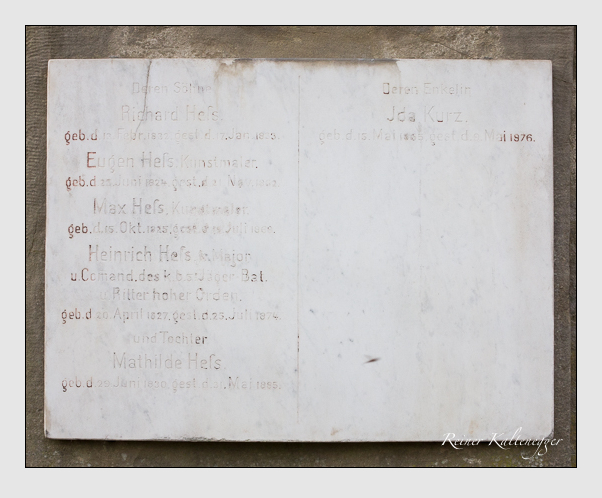 Deren Söhne
Richard Heſs.
geb.d. Febr. gest.d. Jan.
Eugen Heſs, Kunstmaler.
geb.d. Juni 1824, gest.d. Nov.
Max Heſs, Kunstmaler.
geb.d.15.Okt.1825, gest.d. Juli
Heinrich Heſs, Major
u.Comand.des k.b. Jäger-Bat.
Ritter hoher Orden,
geb.d. April 1827, gest.d.23.Juli 1874.
und Tochter
Mathilde Heſs
geb.d. Juni 1830, gest.d. Mai
Deren Enkelin
Jda Kurz.
geb.d. Mai gest.d. Mai 1876.
Reiner Kaltenegger